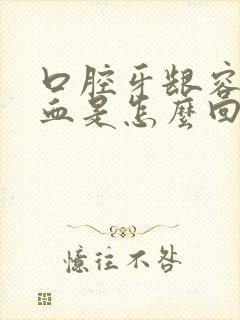 口腔牙龈容
血是怎么回
憶往不咎